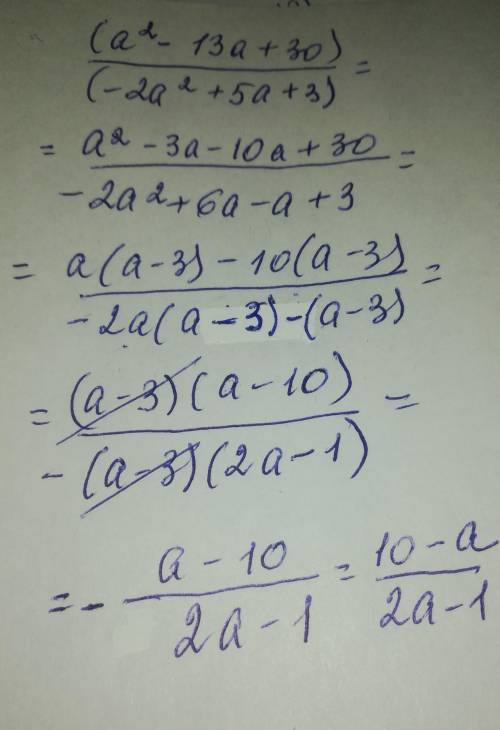 (a² - 13a + 30)
(-2a² + 5a + 3) =
= a² - 3a - 10a + 30
-2a² + 6a - a + 3 =
= a(a-3) - 10(a-3)
-2a(a-3) - (a-3) =
= (a-3)(a-10)
-(a-3)(2a-1) =
= - a - 10 = 10 - a
2a - 1 2a - 1